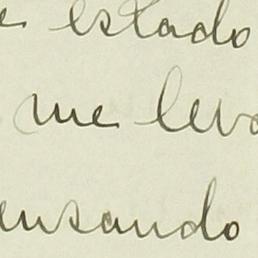 e estado
me leva
ensando